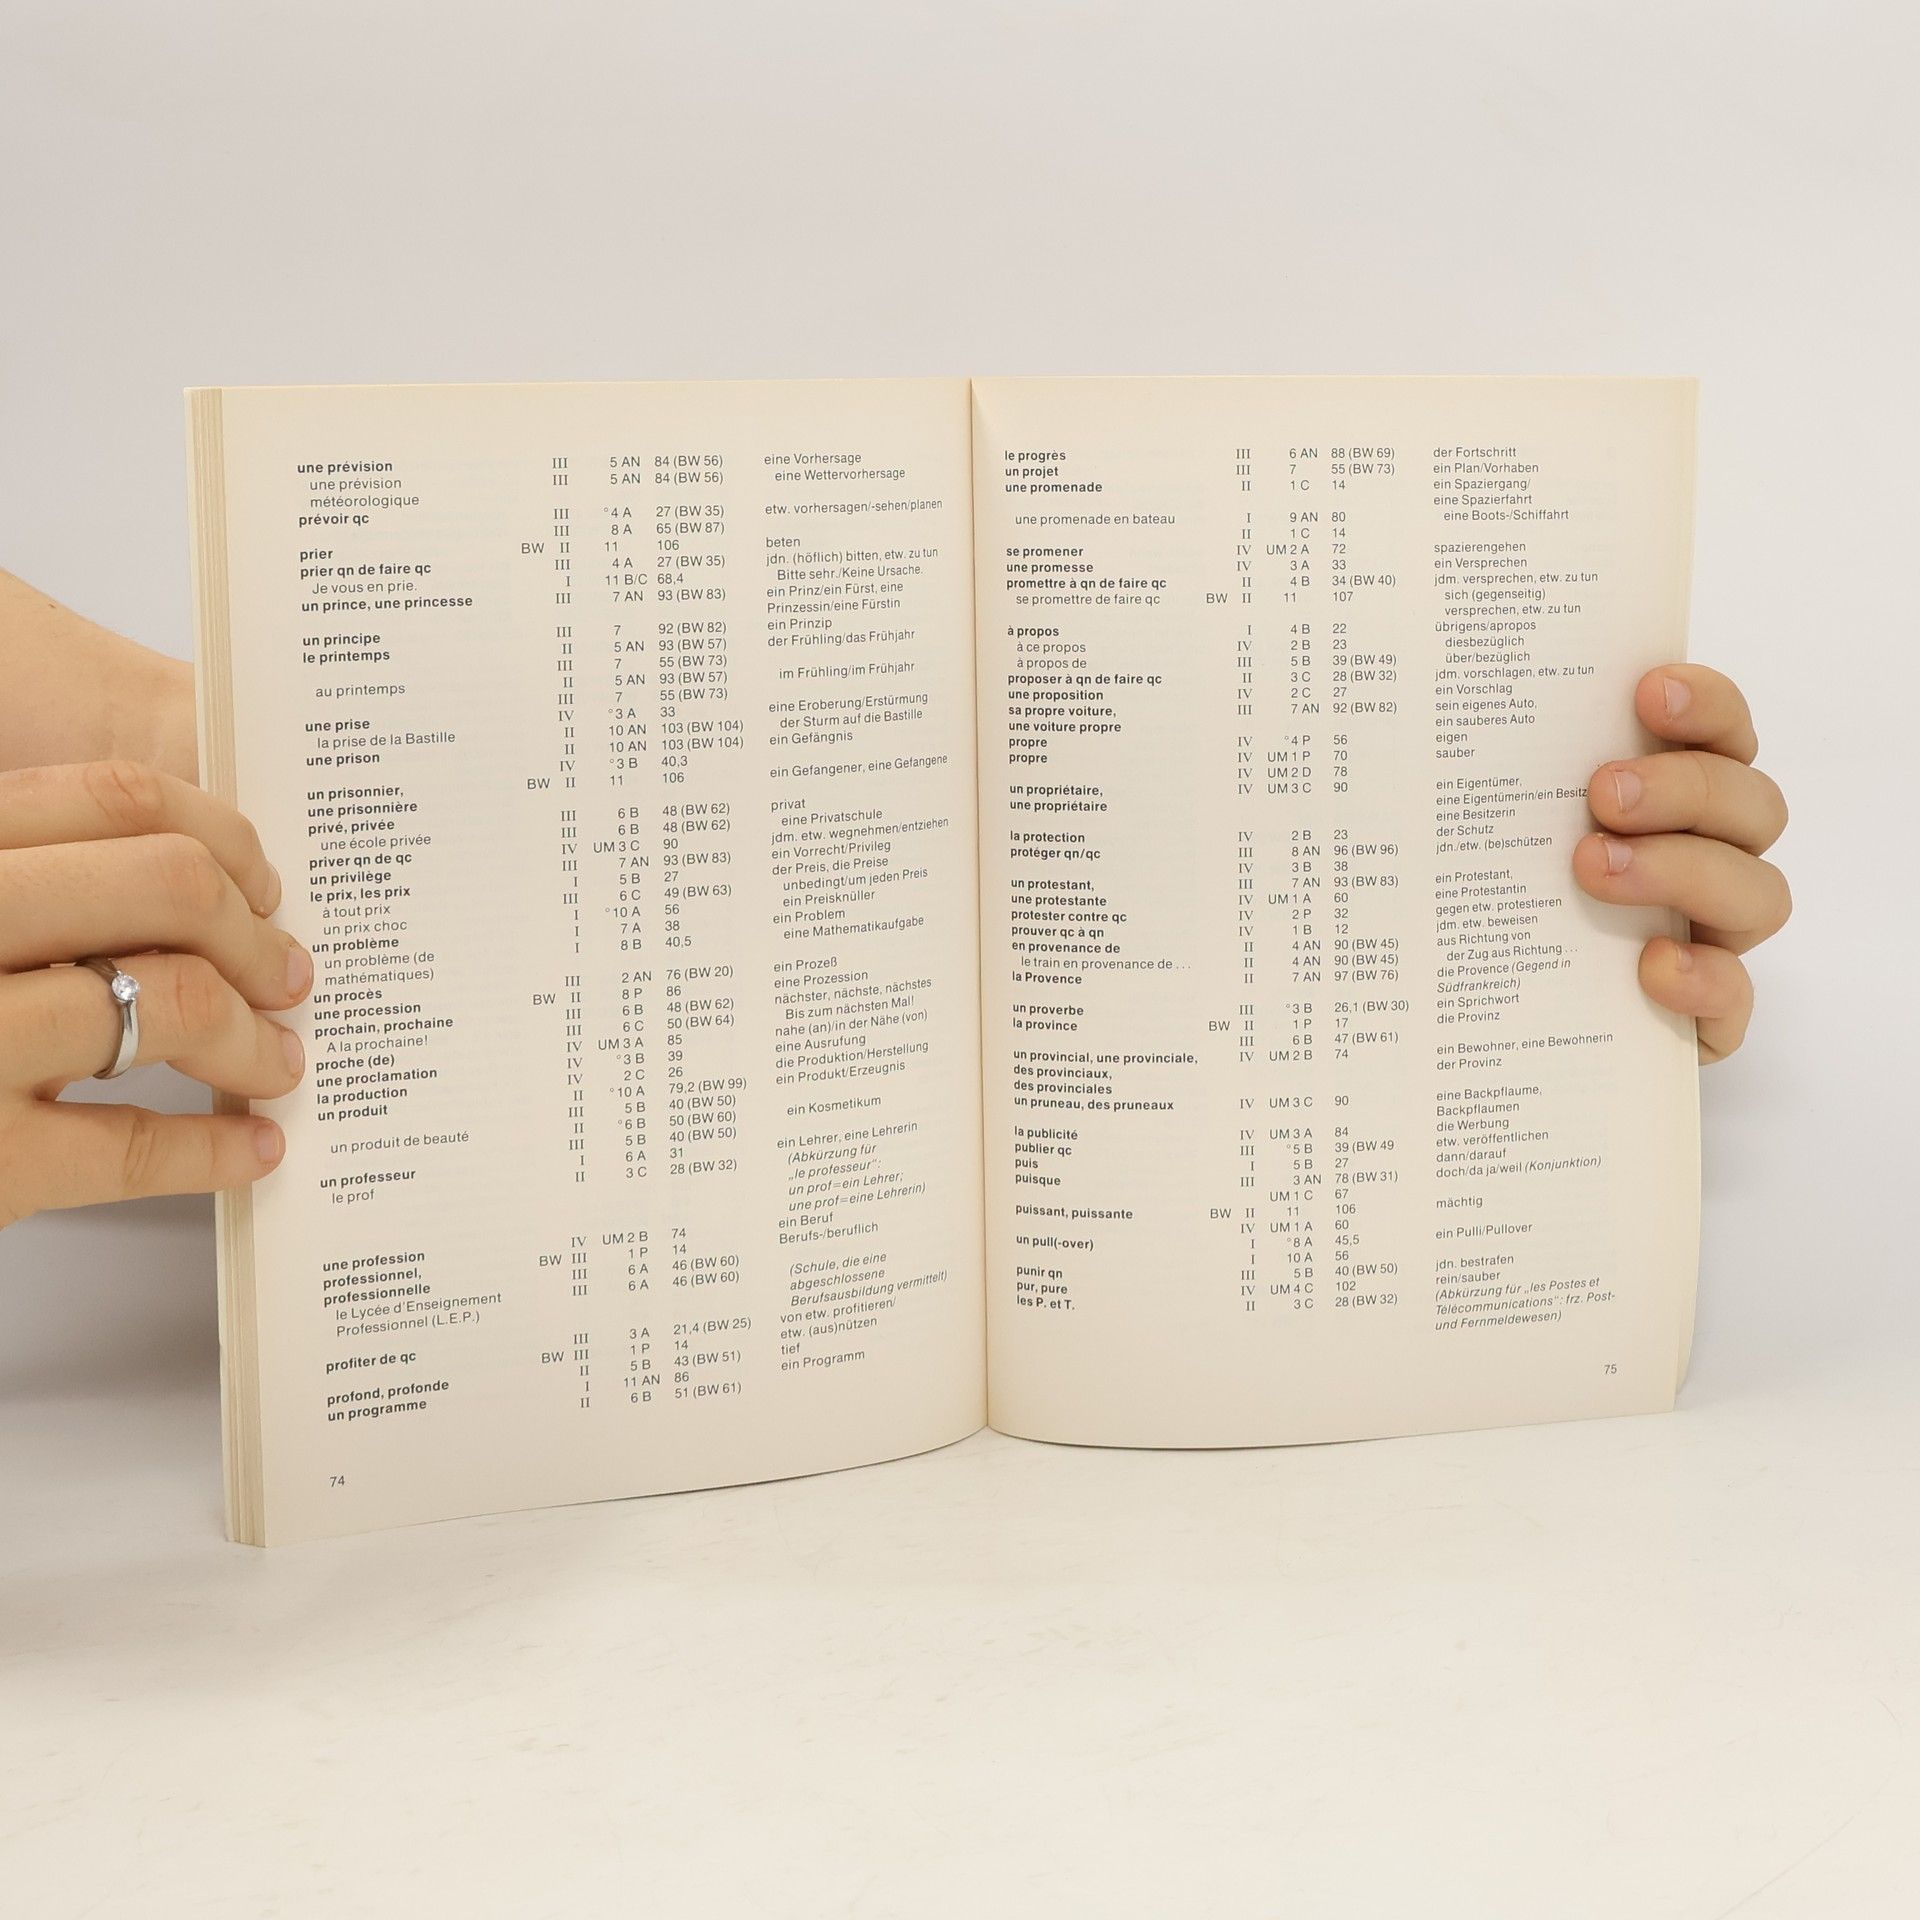 une prévision III 5 AN 84 (BW 56) eine Vorhersage
une prévision III 5 AN 84 (BW 56) eine Wettervorhersage
météorologique
prévoir qc III °4 A 27 (BW 35) etw. vorhersagen/-sehen/planen
III 8 A 65 (BW 87)
prier BW II 11 106 beten
prier qn de faire qc III 4 A 27 (BW 35) jdn. (höflich) bitten, etw. zu tun
Je vous en prie. I 11 B/C 68,4 Bitte sehr./Keine Ursache.
un prince, une princesse III 7 AN 93 (BW 83) ein Prinz/ein Fürst, eine
Prinzessin/eine Fürstin
un principe III 7 92 (BW 82) ein Prinzip
le printemps II 5 AN 93 (BW 57) der Frühling/das Frühjahr
III 7 55 (BW 73)
au printemps II 5 AN 93 (BW 57) im Frühling/im Frühjahr
III 7 55 (BW 73)
une prise IV °3 A 33 eine Eroberung/Erstürmung
la prise de la Bastille II 10 AN 103 (BW 104) der Sturm auf die Bastille
une prison II 10 AN 103 (BW 104) ein Gefängnis
IV °3 B 40,3
un prisonnier, BW II 11 106 ein Gefangener, eine Gefangene
une prisonnière
privé, privée III 6 B 48 (BW 62) privat
une école privée III 6 B 48 (BW 62) eine Privatschule
priver qn de qc IV UM 3 C 90 jdm. etw. wegnehmen/entziehen
un privilège III 7 AN 93 (BW 83) ein Vorrecht/Privileg
le prix, les prix I 5 B 27 der Preis, die Preise
à tout prix III 6 C 49 (BW 63) unbedingt/um jeden Preis
un prix choc I °10 A 56 ein Preisknüller
un problème I 7 A 38 ein Problem
un problème (de I 8 B 40,5 eine Mathematikaufgabe
mathématiques)
un procès III 2 AN 76 (BW 20) ein Prozeß
une procession BW II 8 P 86 eine Prozession
prochain, prochaine III 6 B 48 (BW 62) nächster, nächste, nächstes
A la prochaine! III 6 C 50 (BW 64) Bis zum nächsten Mal!
proche (de) IV UM 3 A 85 nahe (an)/in der Nähe (von)
une proclamation IV °3 B 39 eine Ausrufung
la production IV 2 C 26 die Produktion/Herstellung
un produit II °10 A 79,2 (BW 99) ein Produkt/Erzeugnis
III 5 B 40 (BW 50)
un produit de beauté II °6 B 50 (BW 60) ein Kosmetikum
III 5 B 40 (BW 50)
un professeur I 6 A 31 ein Lehrer, eine Lehrerin
le prof II 3 C 28 (BW 32) (Abkürzung für
„le professeur“:
un prof=ein Lehrer;
une prof=eine Lehrerin)
une profession IV UM 2 B 74 ein Beruf
professionnel, BW III 1 P 14 Berufs-/beruflich
professionnelle III 6 A 46 (BW 60)
le Lycée d'Enseignement III 6 A 46 (BW 60) (Schule, die eine
Professionnel (L.E.P.) abgeschlossene
Berufsausbildung vermittelt)
profiter de qc III 3 A 21,4 (BW 25) von etw. profitieren/
BW III 1 P 14 etw. (aus)nützen
profond, profonde II 5 B 43 (BW 51) tief
un programme I 11 AN 86 ein Programm
II 6 B 51 (BW 61)
74
le progrès III 6 AN 88 (BW 69) der Fortschritt
un projet III 7 55 (BW 73) ein Plan/Vorhaben
une promenade II 1 C 14 ein Spaziergang/
eine Spazierfahrt
une promenade en bateau I 9 AN 80 eine Boots-/Schiffahrt
II 1 C 14
se promener IV UM 2 A 72 spazierengehen
une promesse IV 3 A 33 ein Versprechen
promettre à qn de faire qc II 4 B 34 (BW 40) jdm. versprechen, etw. zu tun
se promettre de faire qc BW II 11 107 sich (gegenseitig)
versprechen, etw. zu tun
à propos I 4 B 22 übrigens/apropos
à ce propos IV 2 B 23 diesbezüglich
à propos de III 5 B 39 (BW 49) über/bezüglich
proposer à qn de faire qc II 3 C 28 (BW 32) jdm. vorschlagen, etw. zu tun
une proposition IV 2 C 27 ein Vorschlag
sa propre voiture, III 7 AN 92 (BW 82) sein eigenes Auto,
une voiture propre ein sauberes Auto
propre IV °4 P 56 eigen
propre IV UM 1 P 70 sauber
IV UM 2 D 78
un propriétaire, IV UM 3 C 90 ein Eigentümer,
une propriétaire eine Eigentümerin/ein Besitz
eine Besitzerin
la protection IV 2 B 23 der Schutz
protéger qn/qc III 8 AN 96 (BW 96) jdn./etw. (be)schützen
IV 3 B 38
un protestant, III 7 AN 93 (BW 83) ein Protestant,
une protestante IV UM 1 A 60 eine Protestantin
protester contre qc IV 2 P 32 gegen etw. protestieren
prouver qc à qn IV 1 B 12 jdm. etw. beweisen
en provenance de II 4 AN 90 (BW 45) aus Richtung von
le train en provenance de . . . II 4 AN 90 (BW 45) der Zug aus Richtung . . .
la Provence II 7 AN 97 (BW 76) die Provence (Gegend in
Südfrankreich)
un proverbe III °3 B 26,1 (BW 30) ein Sprichwort
la province BW II 1 P 17 die Provinz
III 6 B 47 (BW 61)
un provincial, une provinciale, IV UM 2 B 74 ein Bewohner, eine Bewohnerin
des provinciaux, der Provinz
des provinciales
un pruneau, des pruneaux IV UM 3 C 90 eine Backpflaume,
Backpflaumen
la publicité IV UM 3 A 84 die Werbung
publier qc III °5 B 39 (BW 49 etw. veröffentlichen
puis I 5 B 27 dann/darauf
puisque III 3 AN 78 (BW 31) doch/da ja/weil (Konjunktion)
UM 1 C 67
puissant, puissante BW II 11 106 mächtig
IV UM 1 A 60
un pull(-over) I °8 A 45,5 ein Pulli/Pullover
I 10 A 56
punir qn III 5 B 40 (BW 50) jdn. bestrafen
pur, pure IV UM 4 C 102 rein/sauber
les P. et T. II 3 C 28 (BW 32) (Abkürzung für „les Postes et
Télécommunications“: frz. Post-
und Fernmeldewesen)
75